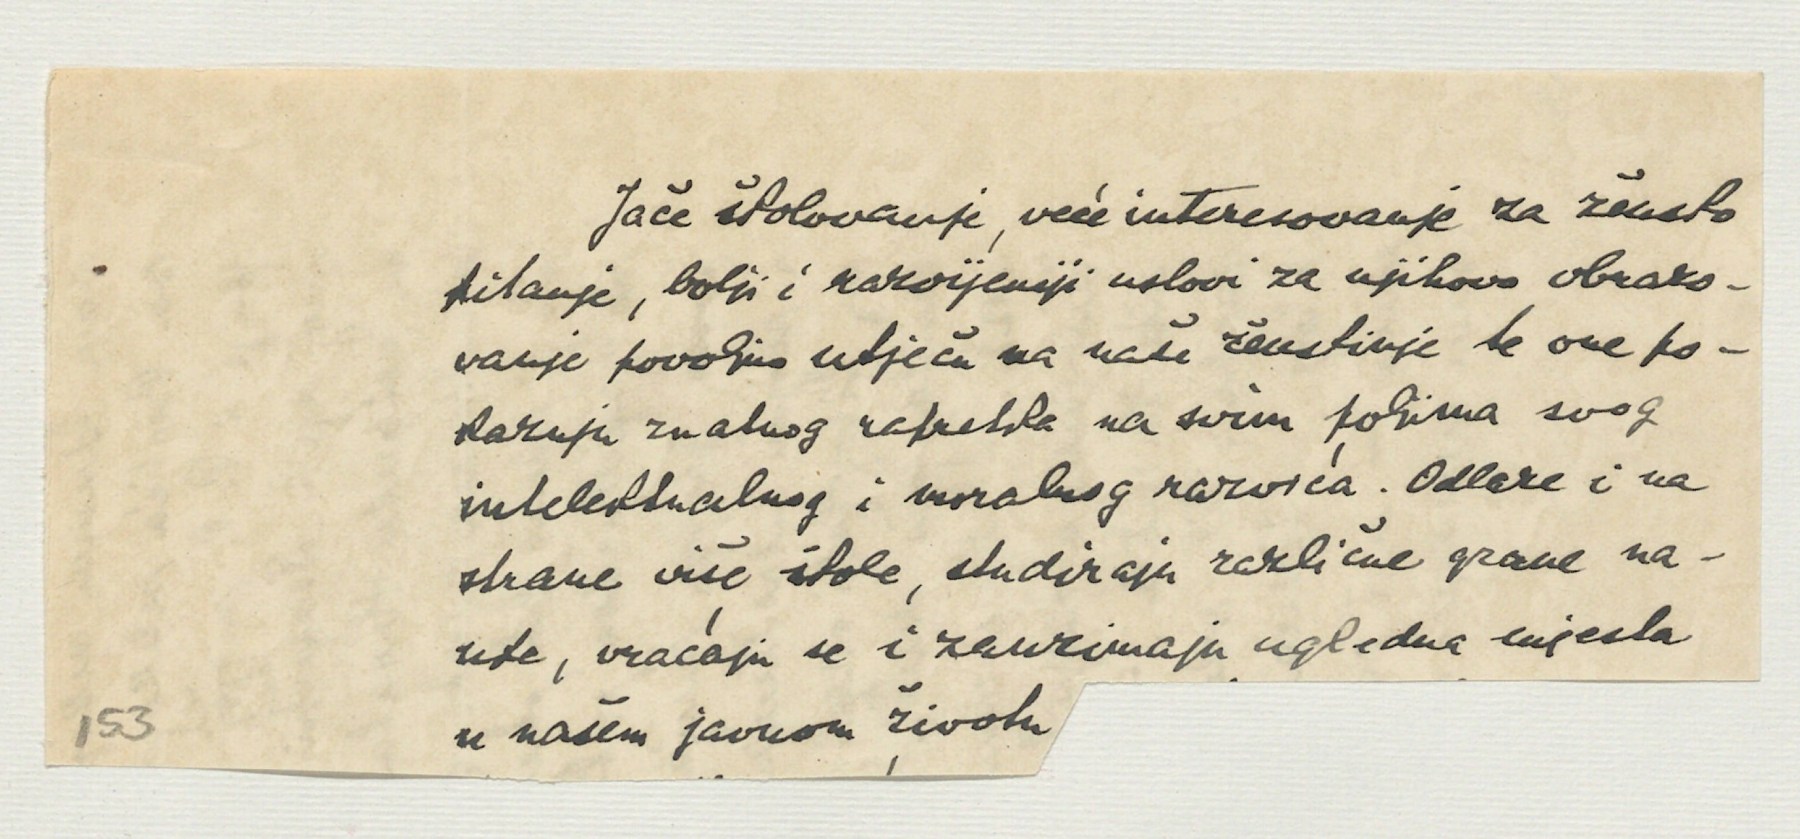 Jače školovanje, veće interesovanje za žensko
pitanje, bolji i razvijeniji uslovi za njihovo obrazo-
vanje povoljno utječu na naše ženskinje te one po-
kazuju znatnog napretka na svim poljima svog
intelektualnog i moralnog razvića. Odlaze i na
strane više škole, studiraju različne grane na-
uke, vraćaju se i zauzimaju ugledna mjesta
u našem javnom životu
153